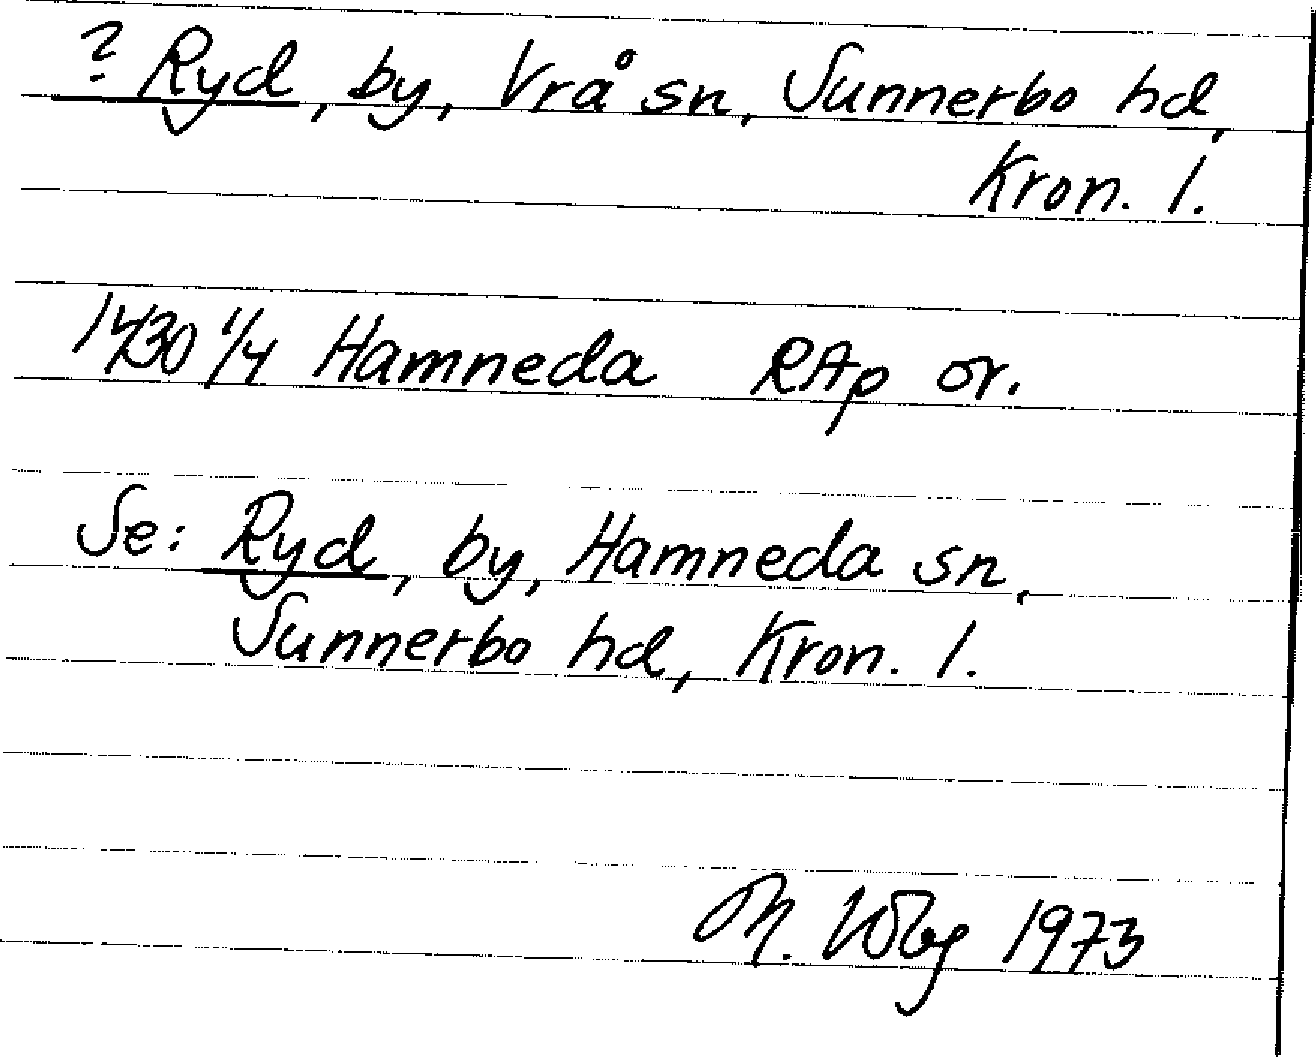 ? Ryd, by, Vrå sn, Sunnerbo hd,
Kron. l.
1430 1/4 Hamneda RAp or.
Se: Ryd, by, Hamneda sn,
Sunnerbo hd, Kron. l.
M. 1973